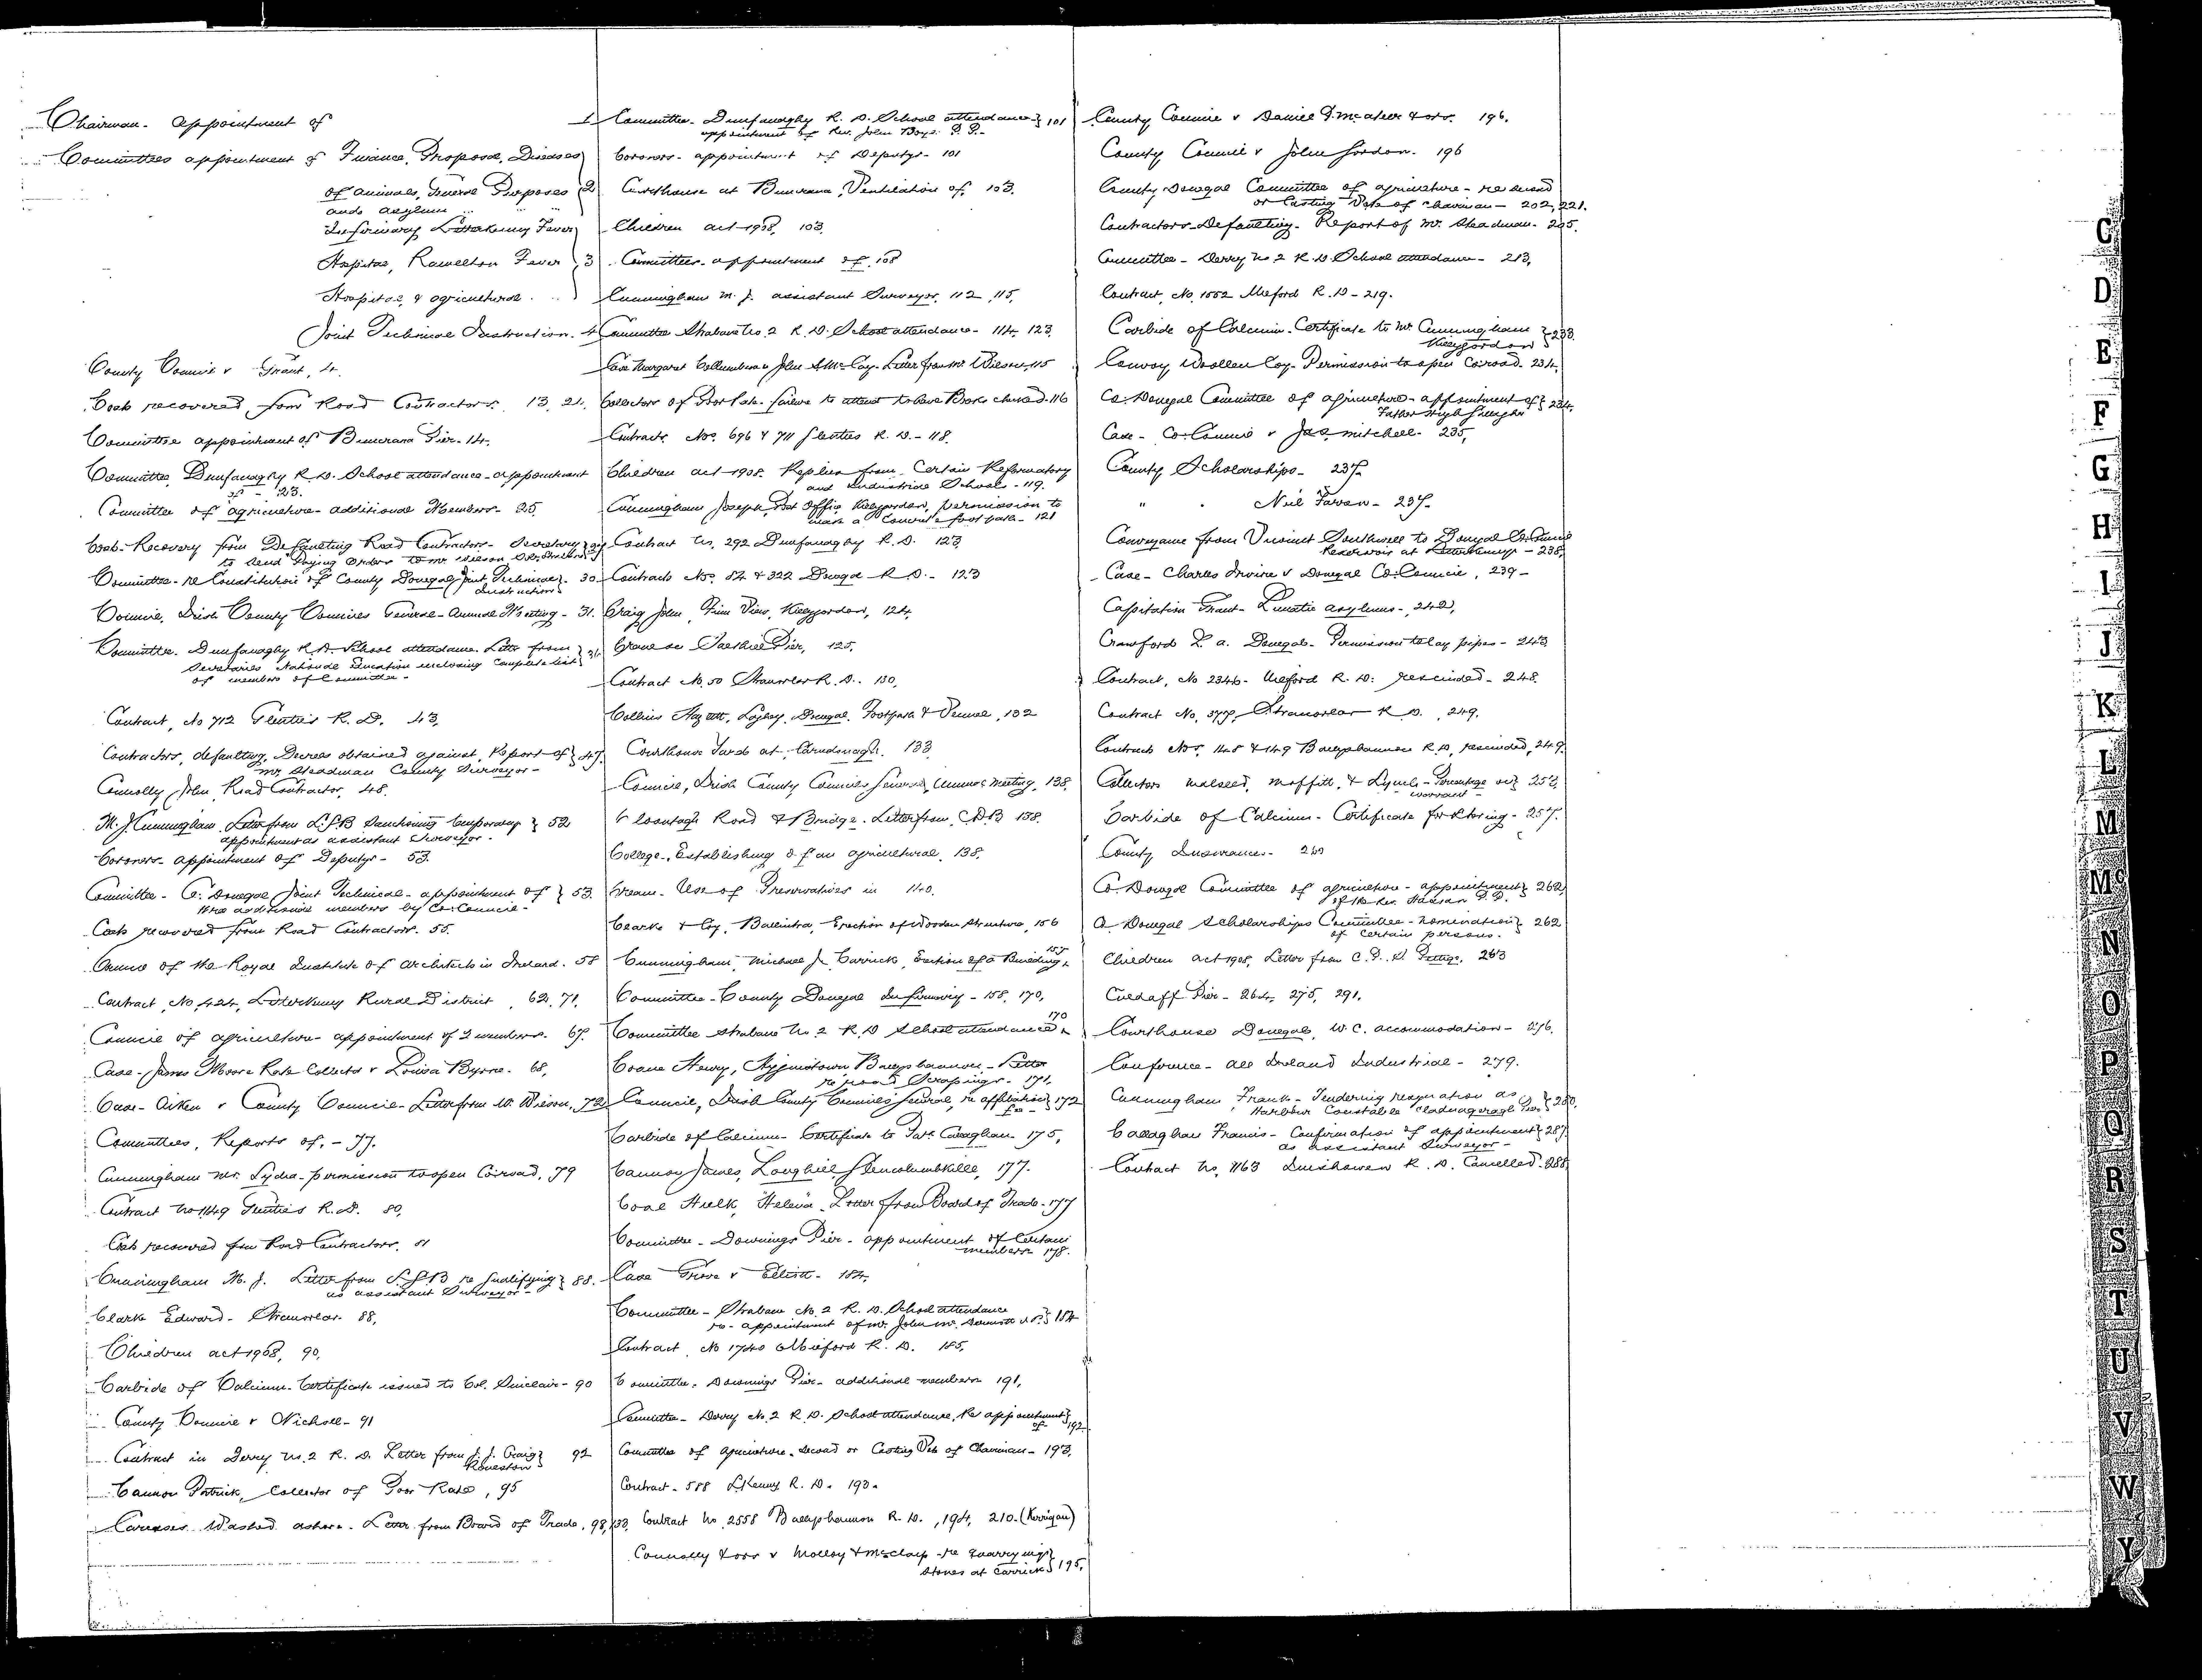 Chairman - Appointment of 1
Committees appointment of Finance, Proposal, Diseases
of Animals, General Purposes } 2
and Asylum
Infirmary Letterkenny Fever
Hospital, Ramelton Fever } 3
Hospital & Agricultural
Joint Technical Instruction. 4
County Council v Grant, 4.
Costs recovered from Road Contractors. 13, 21.
Committee appointment of Buncrana Pier. 14.
Committee Dunfanaghy R. D. School attendance - appointment
of - 23.
Committee of Agriculture - additional Members - 25
Costs - Recovery from Defaulting Road Contractors - Secretary
to send Paying Order to Mr Wilson
Committee - re Constitution of County Donegal Joint Technical - 30
Instruction
Council, Irish County Councils General - Annual Meeting - 31.
Committee. Dunfanaghy R. D. School attendance. Letter from
Secretaries National Education enclosing complete list
of members of Committee -
Contract, No 712 Glenties R. D. 43,
Contractors, defaulting, Decrees obtained against, Report of } 47.
Mr Steadman County Surveyor -
Connolly John, Road Contractor, 48.
M. J. Cunningham. Letter from L.G.B sanctioning temporary } 52
appointment as assistant Surveyor -
Coroners - appointment of Deputys - 53.
Committee - Co. Donegal Joint Technical - appointment of } 53.
additional members by Co. Council -
Costs recovered from Road Contractors. 55.
Council of the Royal Institute of Architects in Ireland. 58
Contract, No 424, Letterkenny Rural District, 62, 71,
Council of Agriculture - appointment of 2 members. 67.
Case - James Moore Rate Collector v Louisa Byrne. 68,
Case - Aiken v County Council - Letter from W. Wilson, 72
Committees, Reports of. - 77.
Cunningham Mrs. Lydia - permission to open Co. road, 79
Contract No 1149 Glenties R. D. 80,
Costs recovered from Road Contractors. 81
Cunningham M. J. Letter from L.G.B re qualifying } 88.
as assistant Surveyor -
Clark Edward - Stranorlar. 88,
Children Act 1908, 90,
Carbide of Calcium - Certificate issued to Col. Sinclair - 90
County Council v Nicholl - 91
Contract in Derry No. 2 R. D. Letter from J. J. Craig } 92
Cannon Patrick, Collector of Poor Rate, 95
Carcases Washed ashore. Letter from Board of Trade, 98, 133,
Committee - Dunfanaghy R. D. School attendance } 101
appointment of Rev. John Boyle P. P. -
Coroners - appointment of Deputys - 101
Courthouse at Buncrana, Ventilation of, 103.
Children Act 1908, 103,
Committees - appointment of, 108
Cunningham M. J. assistant Surveyor, 112, 115,
Committee Strabane No. 2 R. D. School attendance - 114, 123
Case Margaret v John - Letter from Mr Wilson, 115
Collectors of Poor Rate - failure to attend to have Books checked - 116
Contracts Nos. 696 & 711 Glenties R. D. - 118.
Children Act 1908. Replies from Certain Reformatory
and Industrial Schools - 119.
Cunningham Joseph, Post Office Killygordon, permission to
make a Concrete footpath - 121
Contract No. 292 Dunfanaghy R. D. 123
Contracts Nos. 84 & 322 Donegal R. D. - 123
Craig John, Finn View, Killygordon, 124,
Pier, 125,
Contract No. 50 Stranorlar R. D. 130,
Collins, Donegal. Footpath & 132
Courthouse Yard at Carndonagh. 133
Council, Irish County Councils General, Annual Meeting, 138,
Road & Bridge. Letter from C.D.B 138.
College, Establishing of an agricultural, 138,
Cream - Use of Preservatives in 140.
Clarke & Coy, Ballintra, Erection of Wooden Structure, 156
Cunningham, Michael J. Carrick, Erection of a Building, 157
Committee - County Donegal Infirmary - 158, 170,
Committee Strabane No 2 R. D School attendance, 170
Coane Henry, Ballyshannon - Letter
re road Scrapings - 171.
Council, Irish County Councils General, re affiliation } 172
fee -
Carbide of Calcium - Certificate to 175,
Cannon James, Loughill, Glencolumbkille, 177.
Coal Hulk, 'Helena'. Letter from Board of Trade - 177
Committee - Downings Pier - appointment of Certain
members 178.
Case Grove v Elliott - 184,
Committee - Strabane No. 2 R. D. School attendance
re - appointment of Mr. John } 184
Contract, No 1740 Milford R. D. 185,
Committee - Downings Pier - additional members 191,
Committee - Derry No. 2 R. D. School attendance, re appointment
of } 192
Committee of Agriculture - Second or Casting Vote of Chairman - 193,
Contract - 588 L'Kenny R. D. 193 -
Contract No. 2558 Ballyshannon R. D., 194, 210. (Kerrigan)
Connolly & ors v Molloy & - re quarrying
stones at Carrick } 195,
County Council v Daniel J. McAteer & ors. 196.
County Council v John Gordon. 196
County Donegal Committee of Agriculture - re second
or Casting Vote of Chairman - 202, 221.
Contractors - Defaulting - Report of Mr. Steadman - 205.
Committee - Derry No 2 R. D. School attendance - 213,
Contract, No. 1552 Milford R. D - 219.
Carbide of Calcium - Certificate to Mr Cunningham } 233.
Killygordon
Convoy Woollen Coy - Permission to open Co. road - 234,
Co. Donegal Committee of Agriculture - appointment of } 234,
Case - Co. Council v Jas Mitchell - 235,
County Scholarships - 237.
" " Neil 237 -
Conveyance from Viscount Southwell to Donegal Co. Council
Reservoir at Letterkenny - 238,
Case - Charles Irvine v Donegal Co. Council, 239 -
Capitation Grant - Lunatic Asylums -, 242,
Crawford R. A. Donegal - Permission to lay pipes - 243
Contract, No 2346 - Milford R. D: rescinded - 248.
Contract No, 377, Stranorlar R. D., 249.
Contracts Nos. 148 & 149 Ballyshannon R. D, rescinded, 249.
Collectors Malseed, Moffitt, & Lynch - Poundage on } 253,
warrant -
Carbide of Calcium - Certificate for storing - 257.
County Insurances - 260
Co. Donegal Committee of Agriculture - appointment } 262,
of the Rev. P. P.
Co Donegal Scholarships Committee - nomination } 262
of certain persons.
Children Act 1908, Letter from C. P. S. Pettigo, 263
Culdaff Pier - 264, 275, 291,
Courthouse Donegal, W. C. accommodation - 276.
Conference - All Ireland Industrial - 279.
Cunningham, Frank - Tendering resignation as
Harbour Constable Pier } 280,
Callaghan Francis - Confirmation of appointment } 287.
as assistant Surveyor -
Contract No, 1163 Inishowen R. D. Cancelled. 288,
C
D
E
F
G
H
I
J
K
L
M
Mc
N
O
P
Q
R
S
T
U
V
W
Y